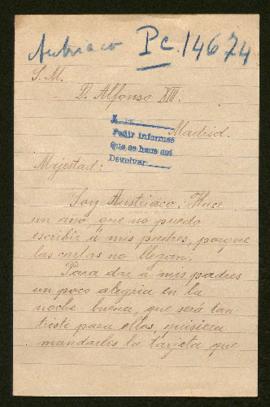 Austriaco Pc. 14674
S. M.
D. Alfonso XIII.
Madrid.
Pedir informes
Que se hace así
Devolver
Majestad:
Soy Austriaco. Hace
un año que no puedo
escribir á mis padres, porque
las cartas no llegan.
Para dar á mis padres
un poco alegria en la
noche buena, que será tan
triste para ellos, quisiera
mandarles la tarjeta que